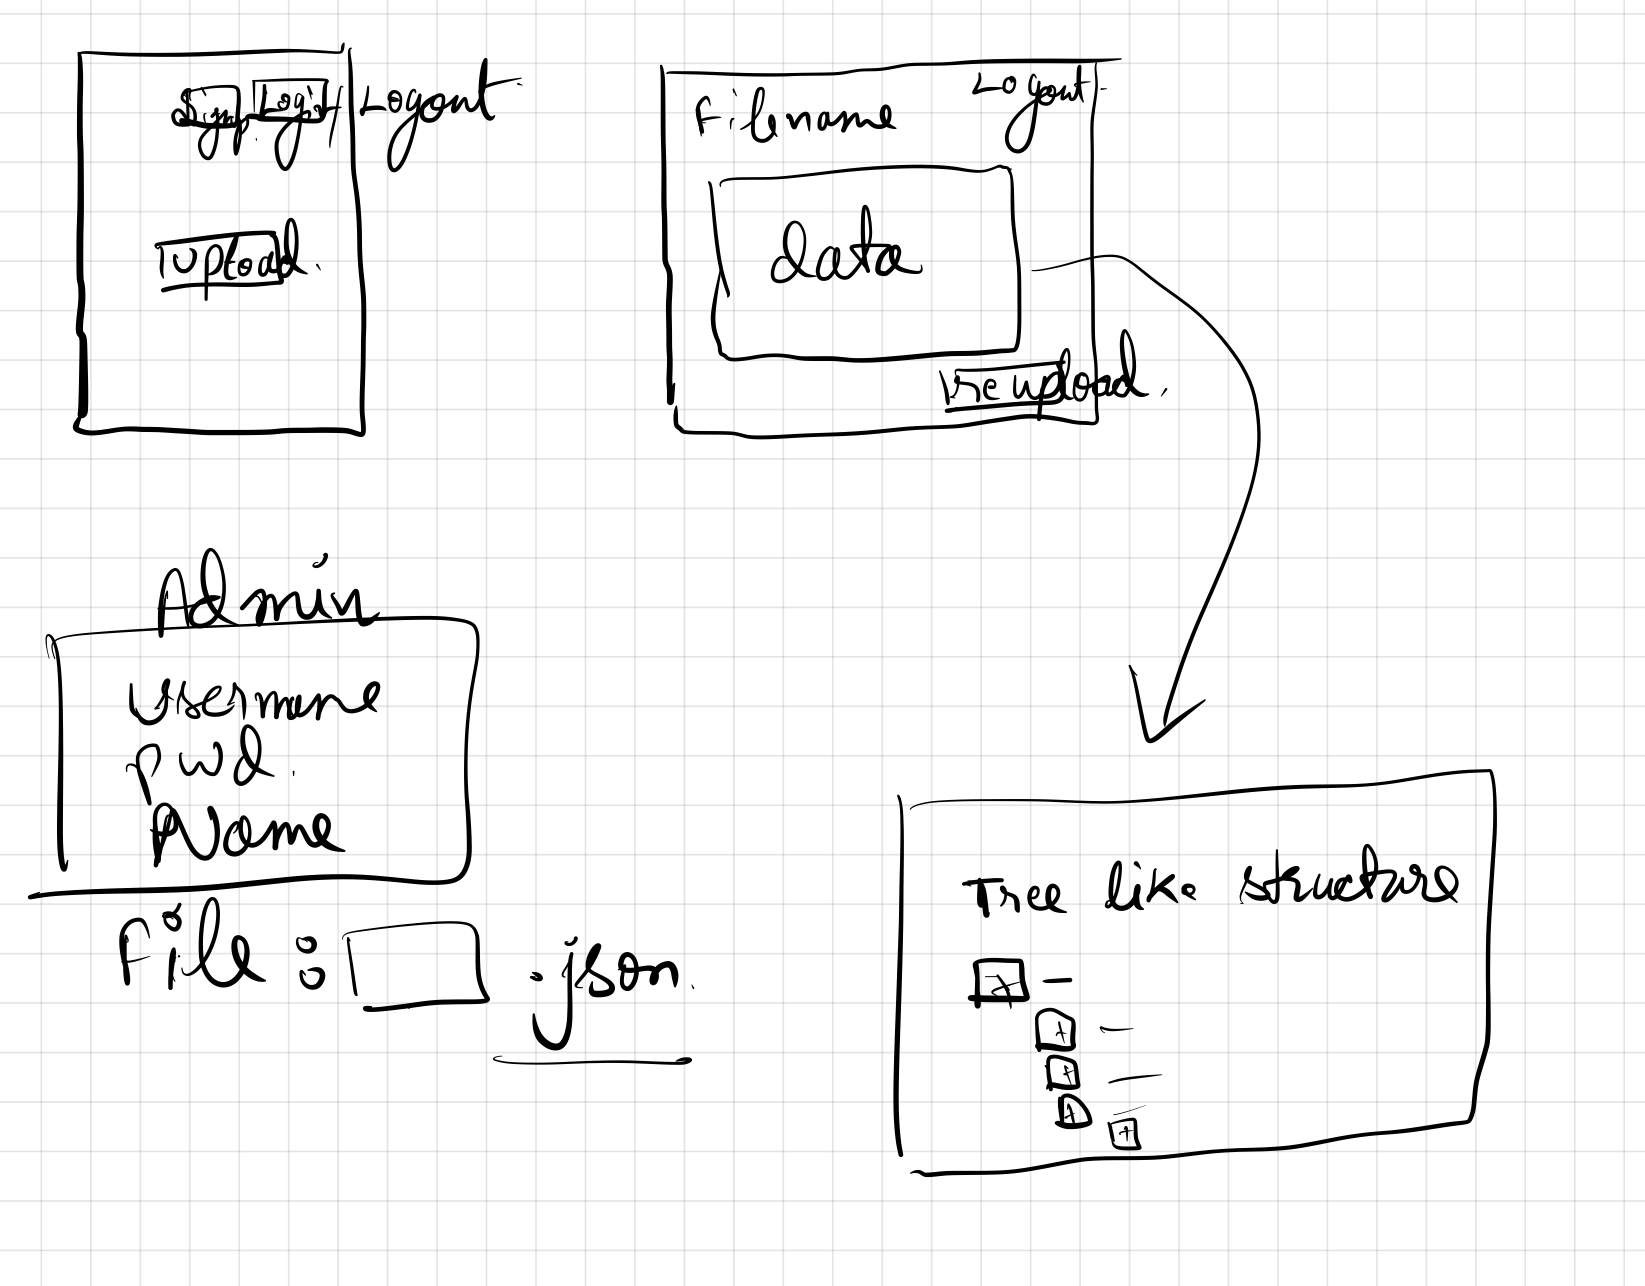 Signup Login / Logout
Upload.
Filename
Logout
data
reupload.
Admin
Username
pwd.
Name
File : .json.
Tree like structure
+ –
+ –
+ –
+ –
+